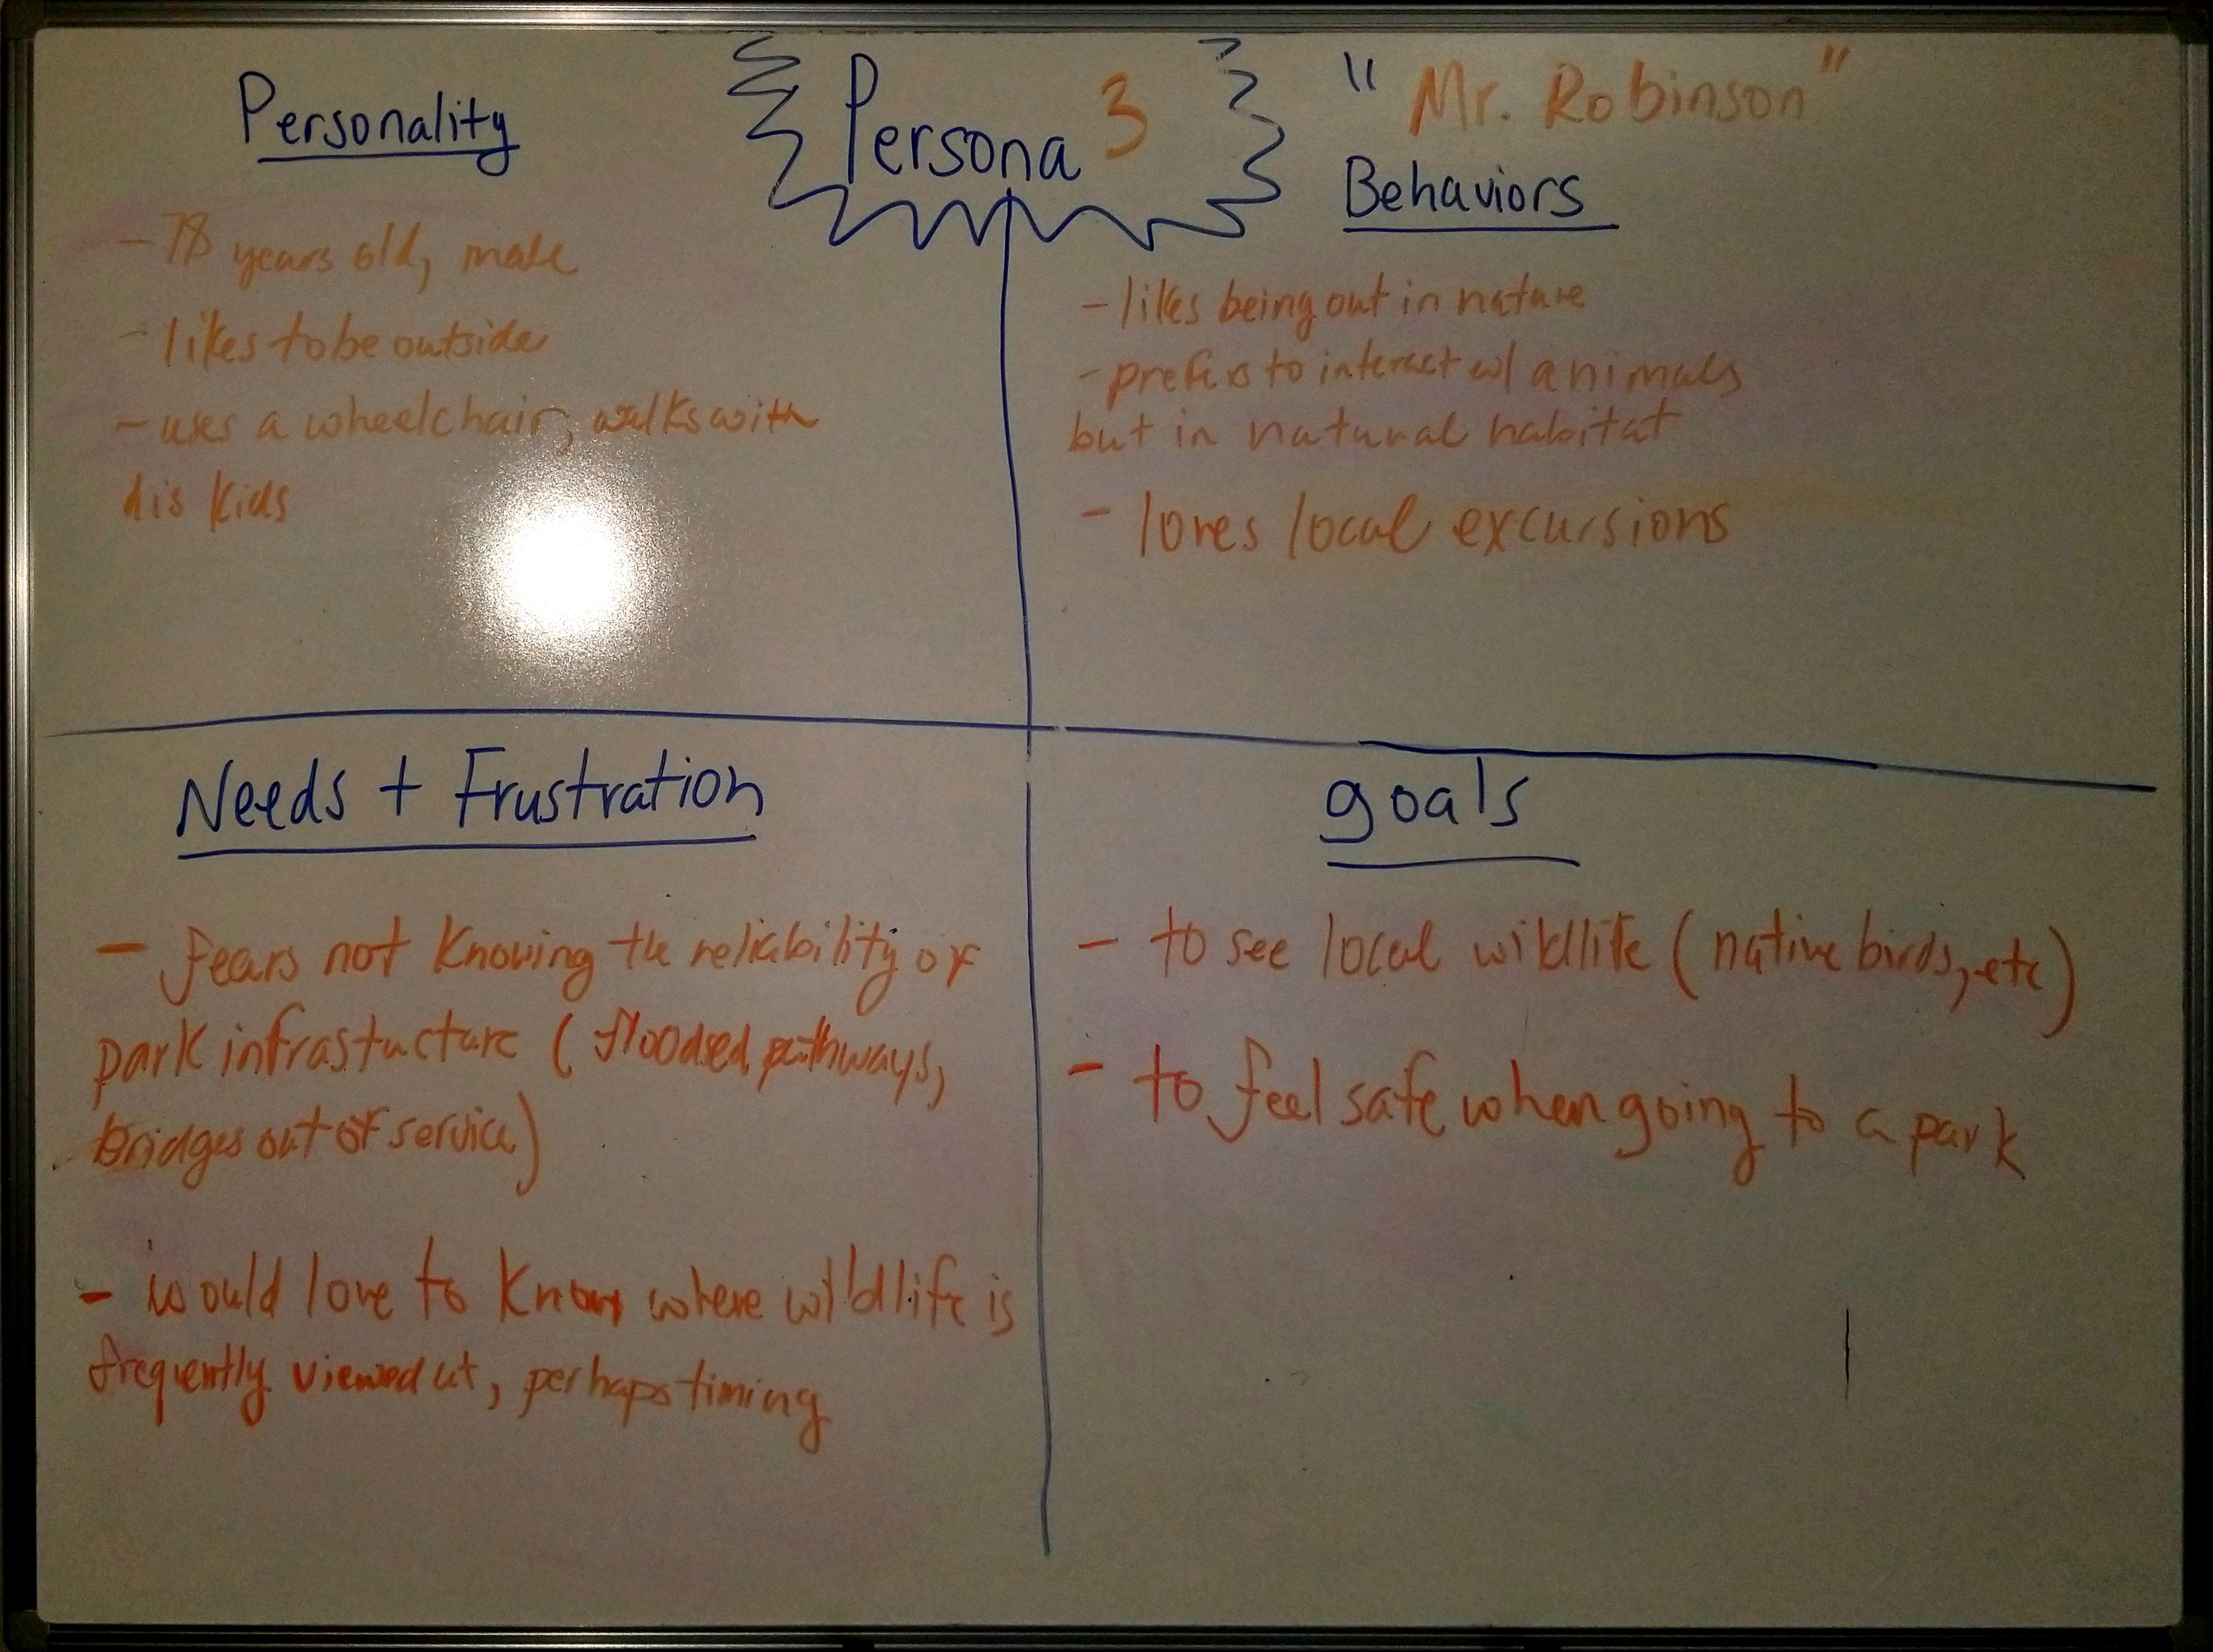 Persona 3
"Mr. Robinson"
Personality
- 78 years old, male
- likes to be outside
- uses a wheelchair, walks with
his kids
Behaviors
- likes being out in nature
- prefers to interact w/ animals
but in natural habitat
- loves local excursions
Needs + Frustration
- fears not knowing the reliability of
park infrastucture (floodsed pathways,
bridges out of service)
- would love to know where wildlife is
frequently viewed at, perhaps timing
goals
- to see local wildlife (native birds, etc)
- to feel safe when going to a park